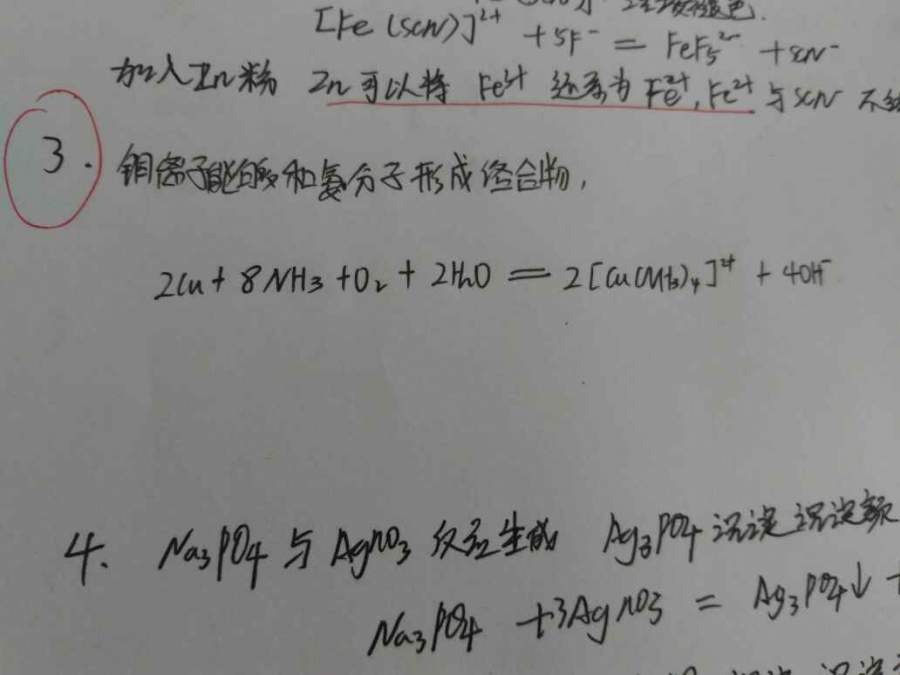 [Fe(SCN)]²⁺ + 5F⁻ = FeF₅²⁻ + SCN⁻
加入Zn粉 Zn可以将 Fe³⁺ 还原为 Fe²⁺, Fe²⁺ 与SCN⁻ 不
3. 铜离子能够和氨分子形成络合物,
2Cu + 8NH₃ + O₂ + 2H₂O = 2[Cu(NH₃)₄]²⁺ + 4OH⁻
4. Na₃PO₄ 与 AgNO₃ 反应生成 Ag₃PO₄ 沉淀 沉淀颜
Na₃PO₄ + 3AgNO₃ = Ag₃PO₄↓ +